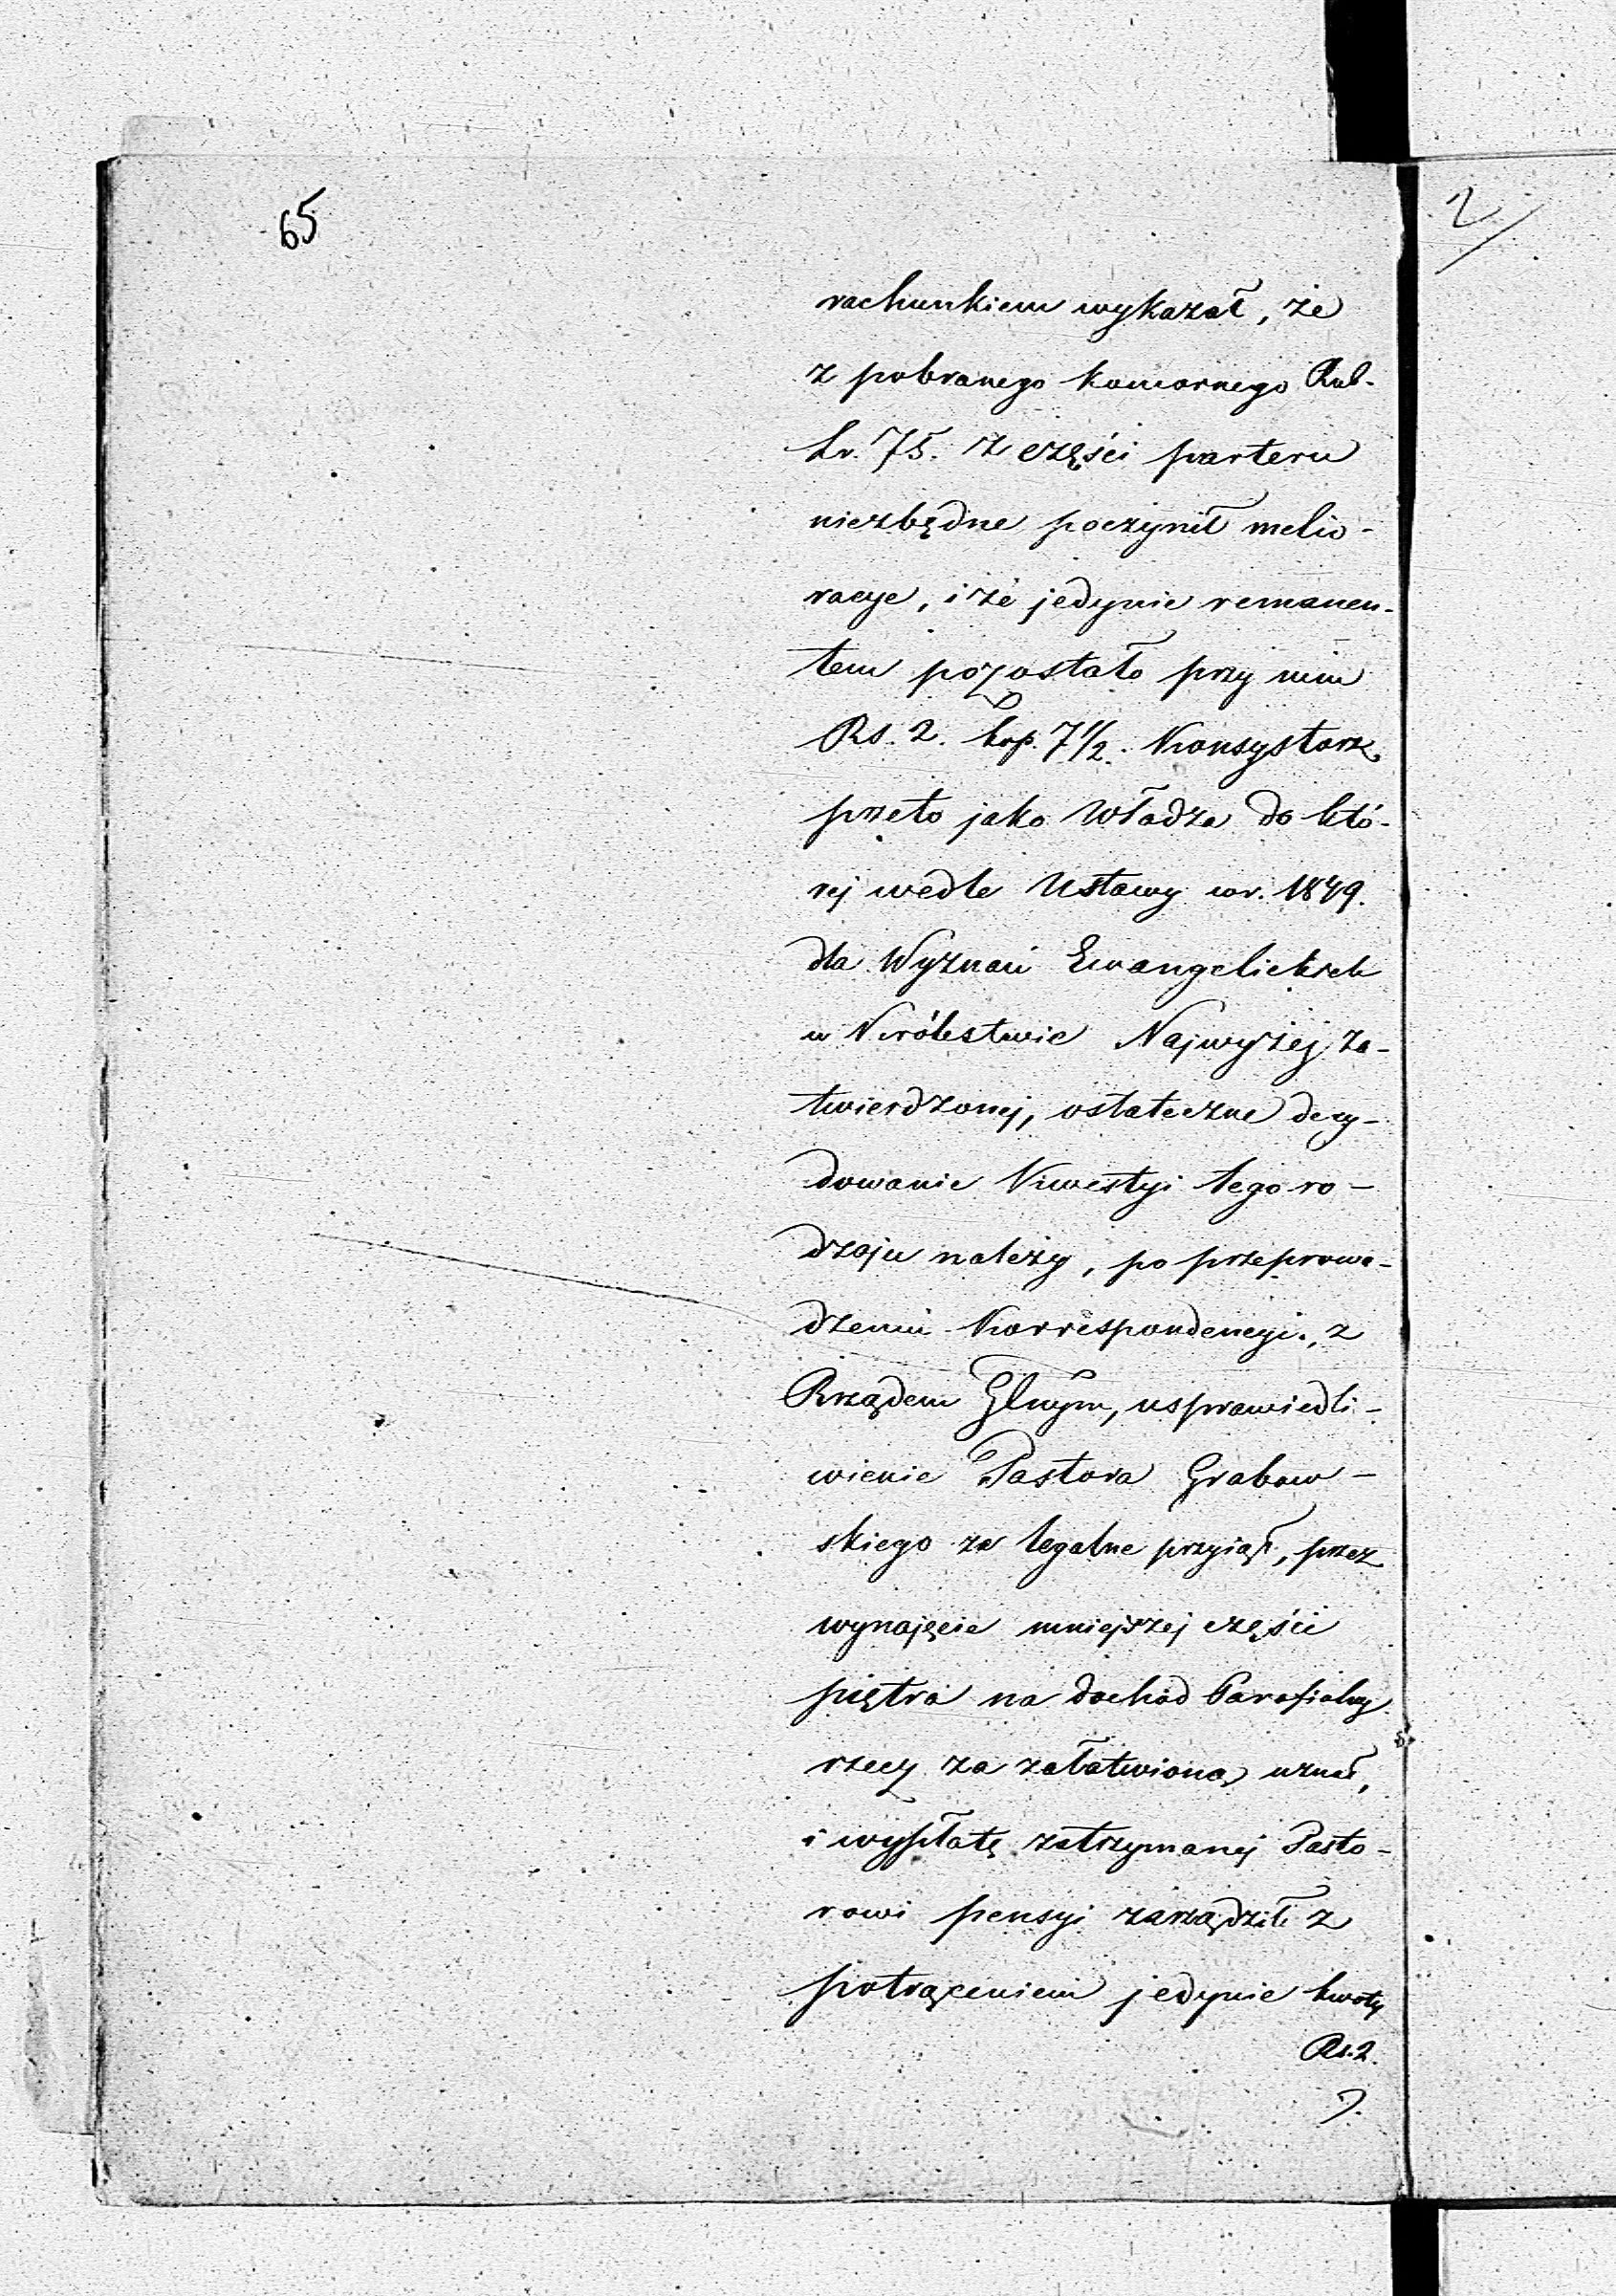 65
2
rachunkiem wykazał, że
z pobranego komornego Rub-
śr. 75. z części parteru
niezbędne poczynił melio-
racye, i że jedynie remanen-
tem pozostało przy nim
Rs. 2. kop. 7 1/2. Konsystorz
przeto jako Władza do któ-
rej wedle Ustawy wr. 1849.
dla Wyznań Ewangelickich
w Królestwie Najwyżej za-
twierdzonej, ostateczne decy-
dowanie Kwestyi tego ro-
dzaju należy, po przeprowa-
dzeniu Korrespondencyi, z
Rządem Glnym, usprawiedli-
wienie Pastora Grabow-
skiego za legalne przyiął, przez
wynajęcie mniejszej części
piętra na dochód Parafialny
rzecz za załatwioną uznał,
i wypłatę zatrzymanej Pasto-
rowi pensyi zarządził z
potrąceniem jedynie kwoty
Rs. 2.